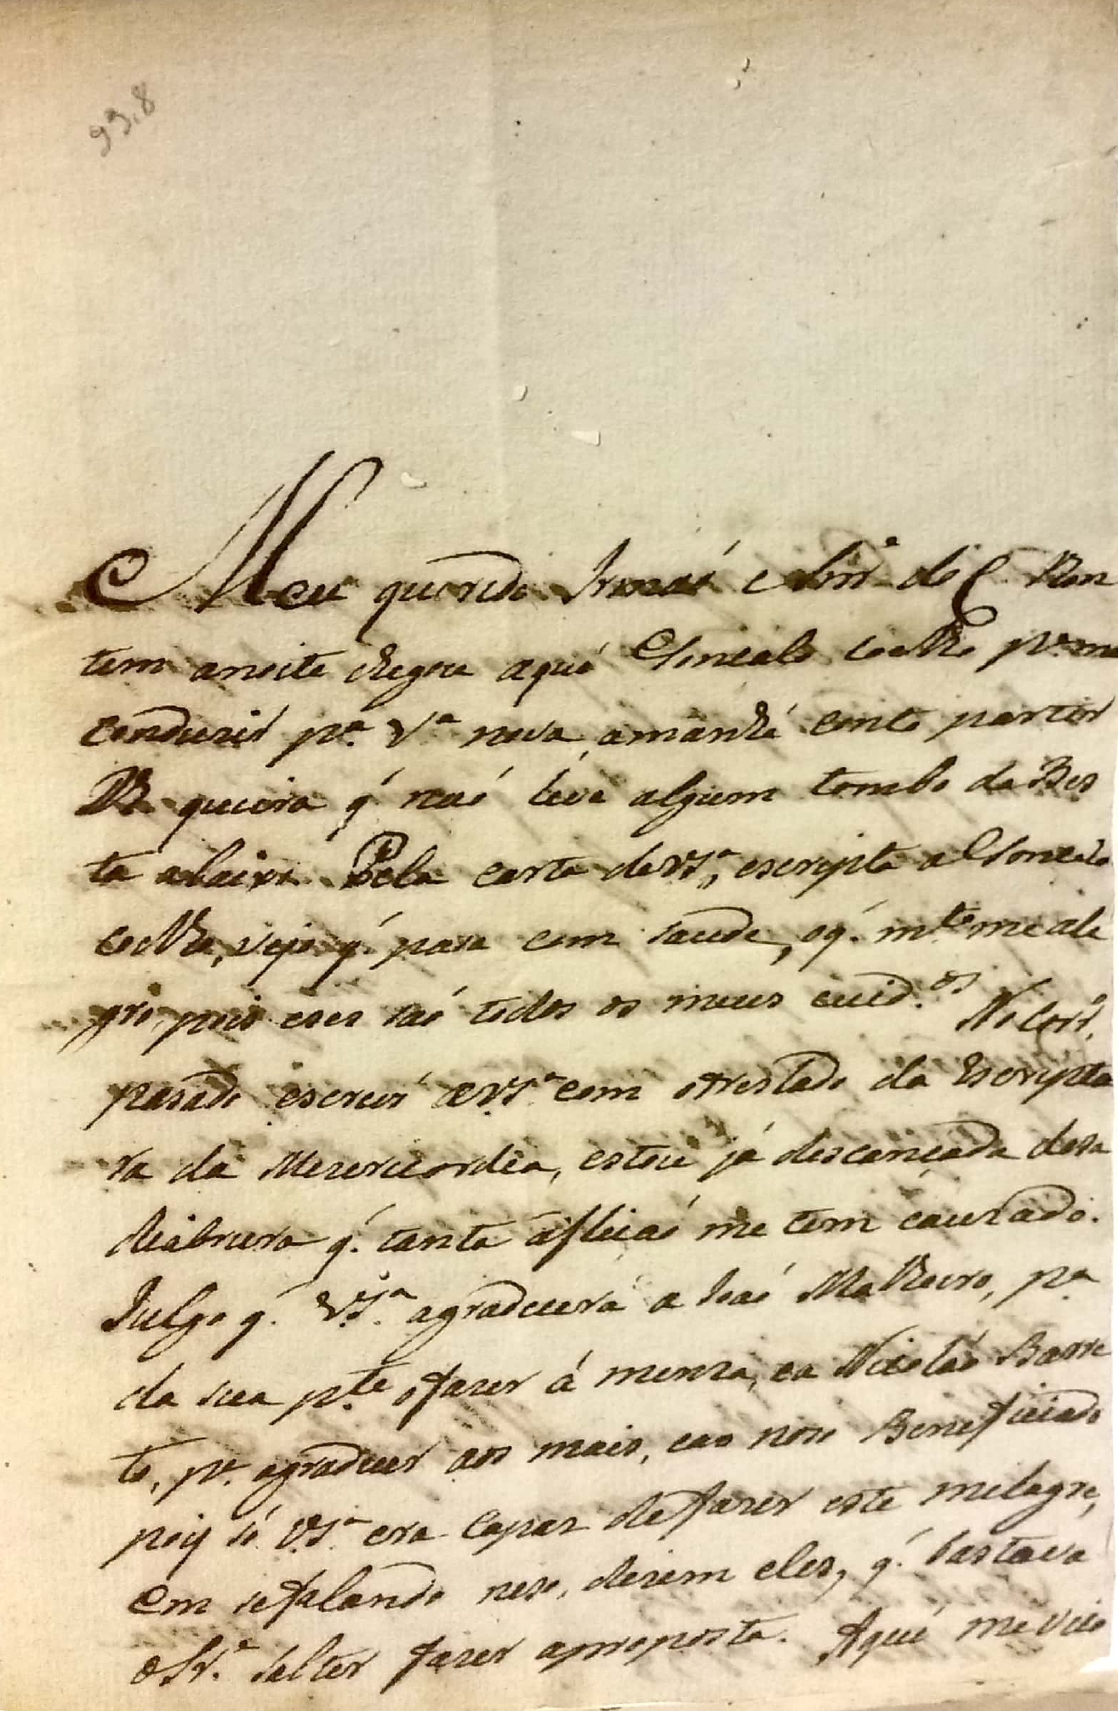 93,8
Meu querido Irmaó e Snr. do C. Hon
tem anoite chegou aqui Gonçalo Coelho pª me
conduzir pª Vª nova, amanhá conto partir
D.s queira q' naó leve algum tombo da Bes
ta abaixo. Pela carta de VSª, escripta a Gonçalo
Coelho, vejo q' pasa com saude, oq' mto me ale
gro, pois eses saó todos os meus cuid.os No Corr.º
pasado escrevi a VSª com otreslado da Escriptu
ra da Mizericordia, estou já descançada desa
diabrura q'. tanta afliçaó me tem cauzado.
Julgo q'. VSª. agradecerá a Joaó Malheiro, pª
da sua pte. ofazer á menza, ea Nicoláo Barre
to, pª. agradecer aos mais, eao noso Beneficiado
pois só VSª era Capaz defazer este milagre,
em sefalando neso, dizem eles, q'. bastava
o Sr.ª Salter fazer aproposta. Aqui me veio